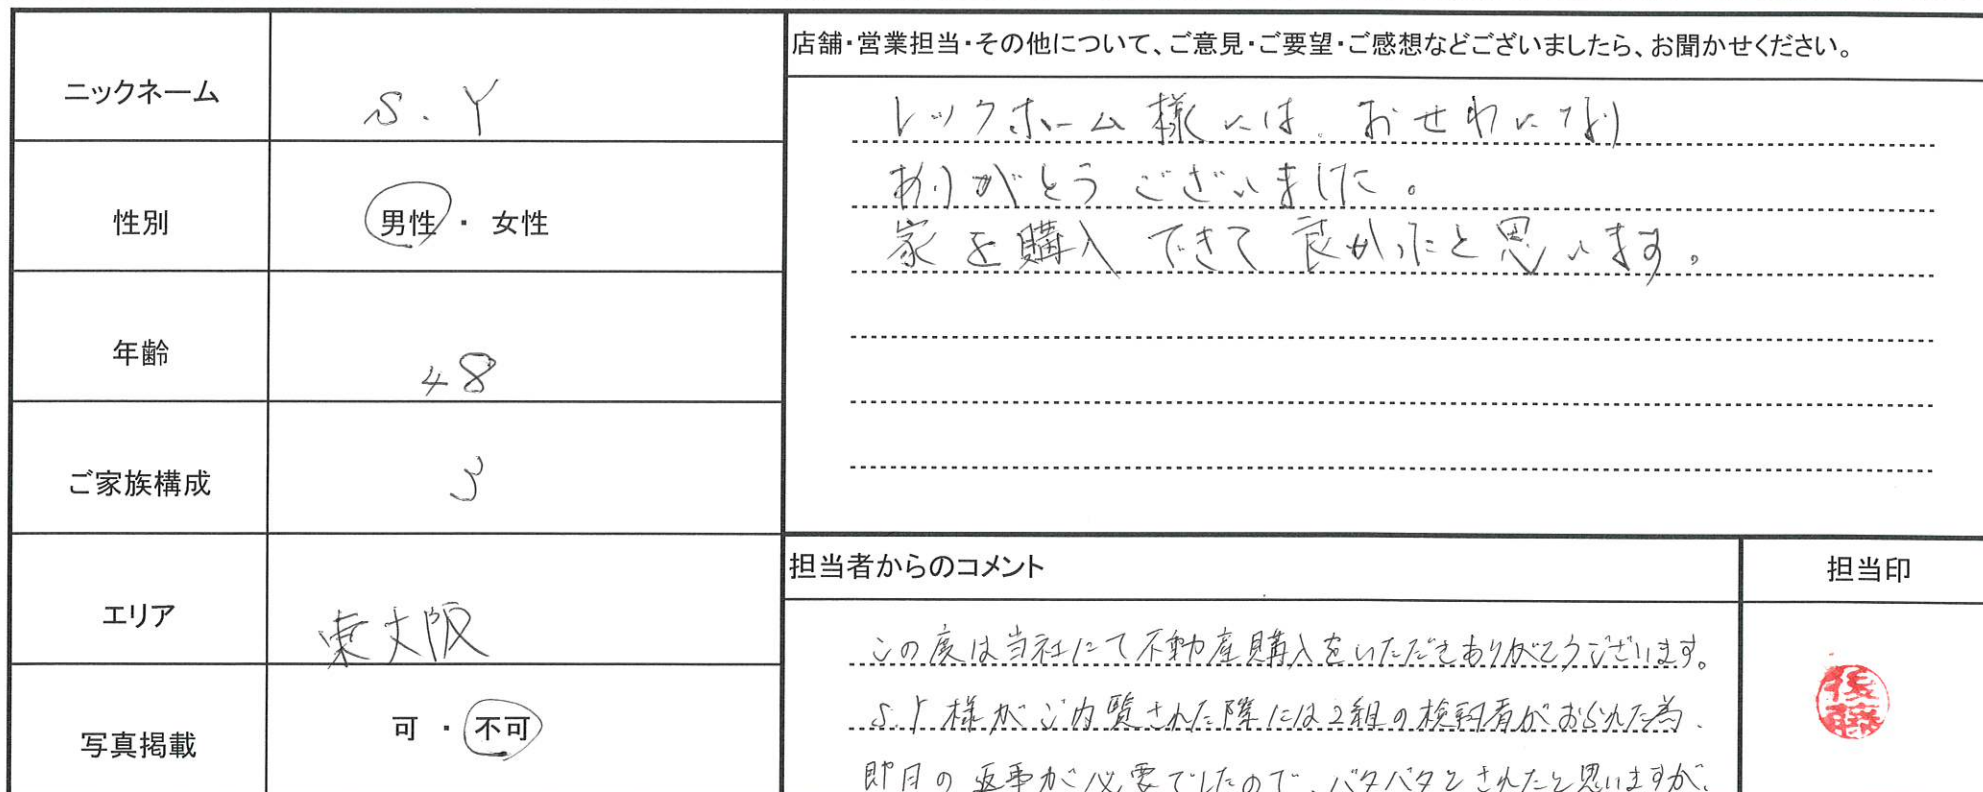 ニックネーム
S.Y
性別
男性 ・ 女性
年齢
48
ご家族構成
3
エリア
東大阪
写真掲載
可 ・ 不可
店舗・営業担当・その他について、ご意見・ご要望・ご感想などございましたら、お聞かせください。
レックホーム様には、おせわになり
ありがとうございました。
家を購入できて良かったと思います。
担当者からのコメント
この度は当社にて不動産購入をいただきありがとうございます。
S.Y様がご内覧された際には2組の検討者がおられた為、
即日の返事が必要でしたので、バタバタとされたと思いますが、
担当印
後藤